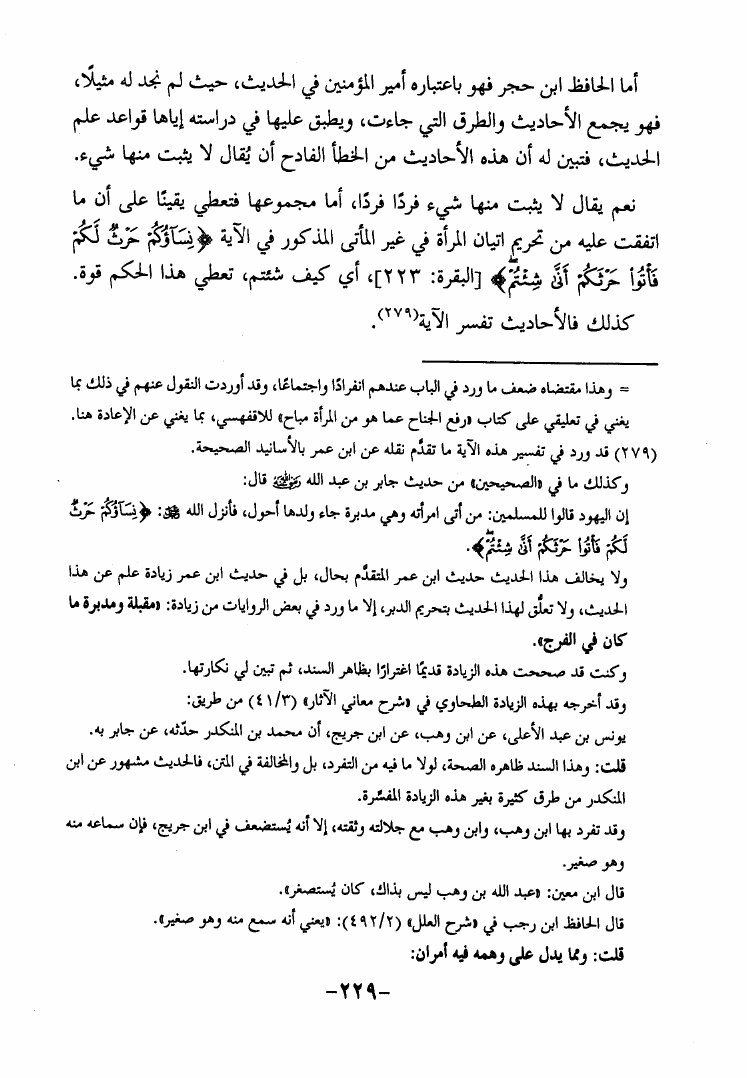 أما الحافظ ابن حجر فهو باعتباره أمير المؤمنين في الحديث، حيث لم نجد له مثيلًا،
فهو يجمع الأحاديث والطرق التي جاءت، ويطبق عليها في دراسته إياها قواعد علم
الحديث، فتبين له أن هذه الأحاديث من الخطأ الفادح أن يُقال لا يثبت منها شيء.
نعم يقال لا يثبت منها شيء فردًا فردًا، أما مجموعها فتعطي يقينًا على أن ما
اتفقت عليه من تحريم اتيان المرأة في غير المأتى المذكور في الآية ﴿نِسَآؤُكُمْ حَرْثٌ لَّكُمْ
فَأْتُوا۟ حَرْثَكُمْ أَنَّىٰ شِئْتُمْ ۖ﴾ [البقرة: ٢٢٣]، أي كيف شئتم، تعطي هذا الحكم قوة.
كذلك فالأحاديث تفسر الآية(٢٧٩).
= وهذا مقتضاه ضعف ما ورد في الباب عندهم انفرادًا واجتماعًا، وقد أوردت النقول عنهم في ذلك بما
يغني في تعليقي على كتاب «رفع الجناح عما هو من المرأة مباح» للاقفهسي، بما يغني عن الإعادة هنا.
(٢٧٩) قد ورد في تفسير هذه الآية ما تقدَّم نقله عن ابن عمر بالأسانيد الصحيحة.
وكذلك ما في «الصحيحين» من حديث جابر بن عبد الله رضي الله عنه قال:
إن اليهود قالوا للمسلمين: من أتى امرأته وهي مدبرة جاء ولدها أحول، فأنزل الله ﷻ: ﴿نِسَآؤُكُمْ حَرْثٌ
لَّكُمْ فَأْتُوا۟ حَرْثَكُمْ أَنَّىٰ شِئْتُمْ ۖ﴾.
ولا يخالف هذا الحديث حديث ابن عمر المتقدَّم بحال، بل في حديث ابن عمر زيادة علم عن هذا
الحديث، ولا تعلُّق لهذا الحديث بتحريم الدبر، إلا ما ورد في بعض الروايات من زيادة: «مقبلة ومدبرة ما
كان في الفرج».
وكنت قد صححت هذه الزيادة قديمًا اغترارًا بظاهر السند، ثم تبين لي نكارتها.
وقد أخرجه بهذه الزيادة الطحاوي في «شرح معاني الآثار» (٤١/٣) من طريق:
يونس بن عبد الأعلى، عن ابن وهب، عن ابن جريج، أن محمد بن المنكدر حدّثه، عن جابر به.
قلت: وهذا السند ظاهره الصحة، لولا ما فيه من التفرد، بل والمخالفة في المتن، فالحديث مشهور عن ابن
المنكدر من طرق كثيرة بغير هذه الزيادة المفسَّرة.
وقد تفرد بها ابن وهب، وابن وهب مع جلالته وثقته، إلا أنه يُستضعف في ابن جريج، فإن سماعه منه
وهو صغير.
قال ابن معين: «عبد الله بن وهب ليس بذاك، كان يُستصغر».
قال الحافظ ابن رجب في «شرح العلل» (٤٩٢/٢): «يعني أنه سمع منه وهو صغير».
قلت: ومما يدل على وهمه فيه أمران:
-٢٢٩-